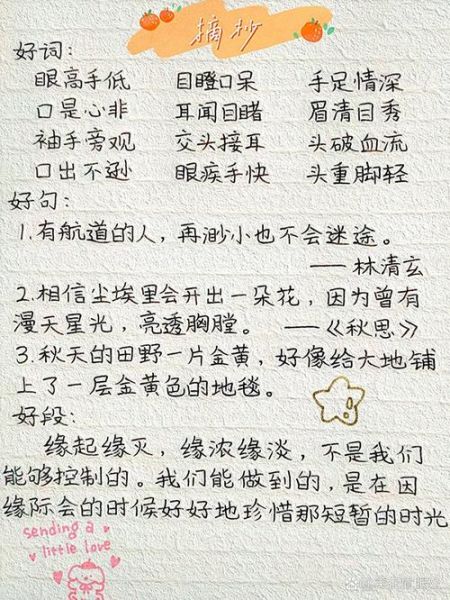 摘抄
好词:
眼高手低 目瞪口呆 手足情深
口是心非 耳闻目睹 眉清目秀
袖手旁观 交头接耳 头破血流
口出不逊 眼疾手快 头重脚轻
好句:
1.有航道的人，再渺小也不会迷途。
——林清玄
2.相信尘埃里会开出一朵花，因为曾有
漫天星光，亮透胸膛。 ——《秋思》
3.秋天的田野一片金黄，好像给大地铺
上了一层金黄色的地毯。
好段:
缘起缘灭，缘浓缘淡，不是我们
能够控制的。我们能做到的，是在因
缘际会的时候好好地珍惜那短暂的时光
sending a
little love